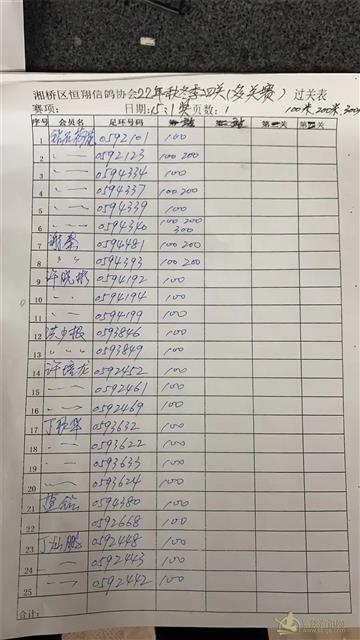 湘桥区恒翔信鸽协会22年秋冬季四关(多关赛)过关表
赛项: 日期: 页数: 1 100米 200米 300
序号 会员名 足环号码 关 关 第三关 第四关
1 0592101 100
2 〃 0592123 100 200
3 〃 0594334 100
4 〃 0594337 100 200
5 〃 0594339 100
6 〃 0594340 100 200 300
7 谢 0594481 100 200
8 〃 0594393 100 200
9 许晓彬 0594192 100
10 〃 0594194 100
11 〃 0594199 100
12 洪少根 0593846 100
13 〃 0593849 100
14 许培龙 0592452 100
15 〃 0592461 100
16 〃 0592469 100
17 丁 0593632 100
18 〃 0593622 100
19 〃 0593633 100
20 〃 0593624 100
21 0594380 100
22 0592668 100
23 丁灿鹏 0592448 100
24 〃 0592443 100
25 〃 0592442 100
合计: